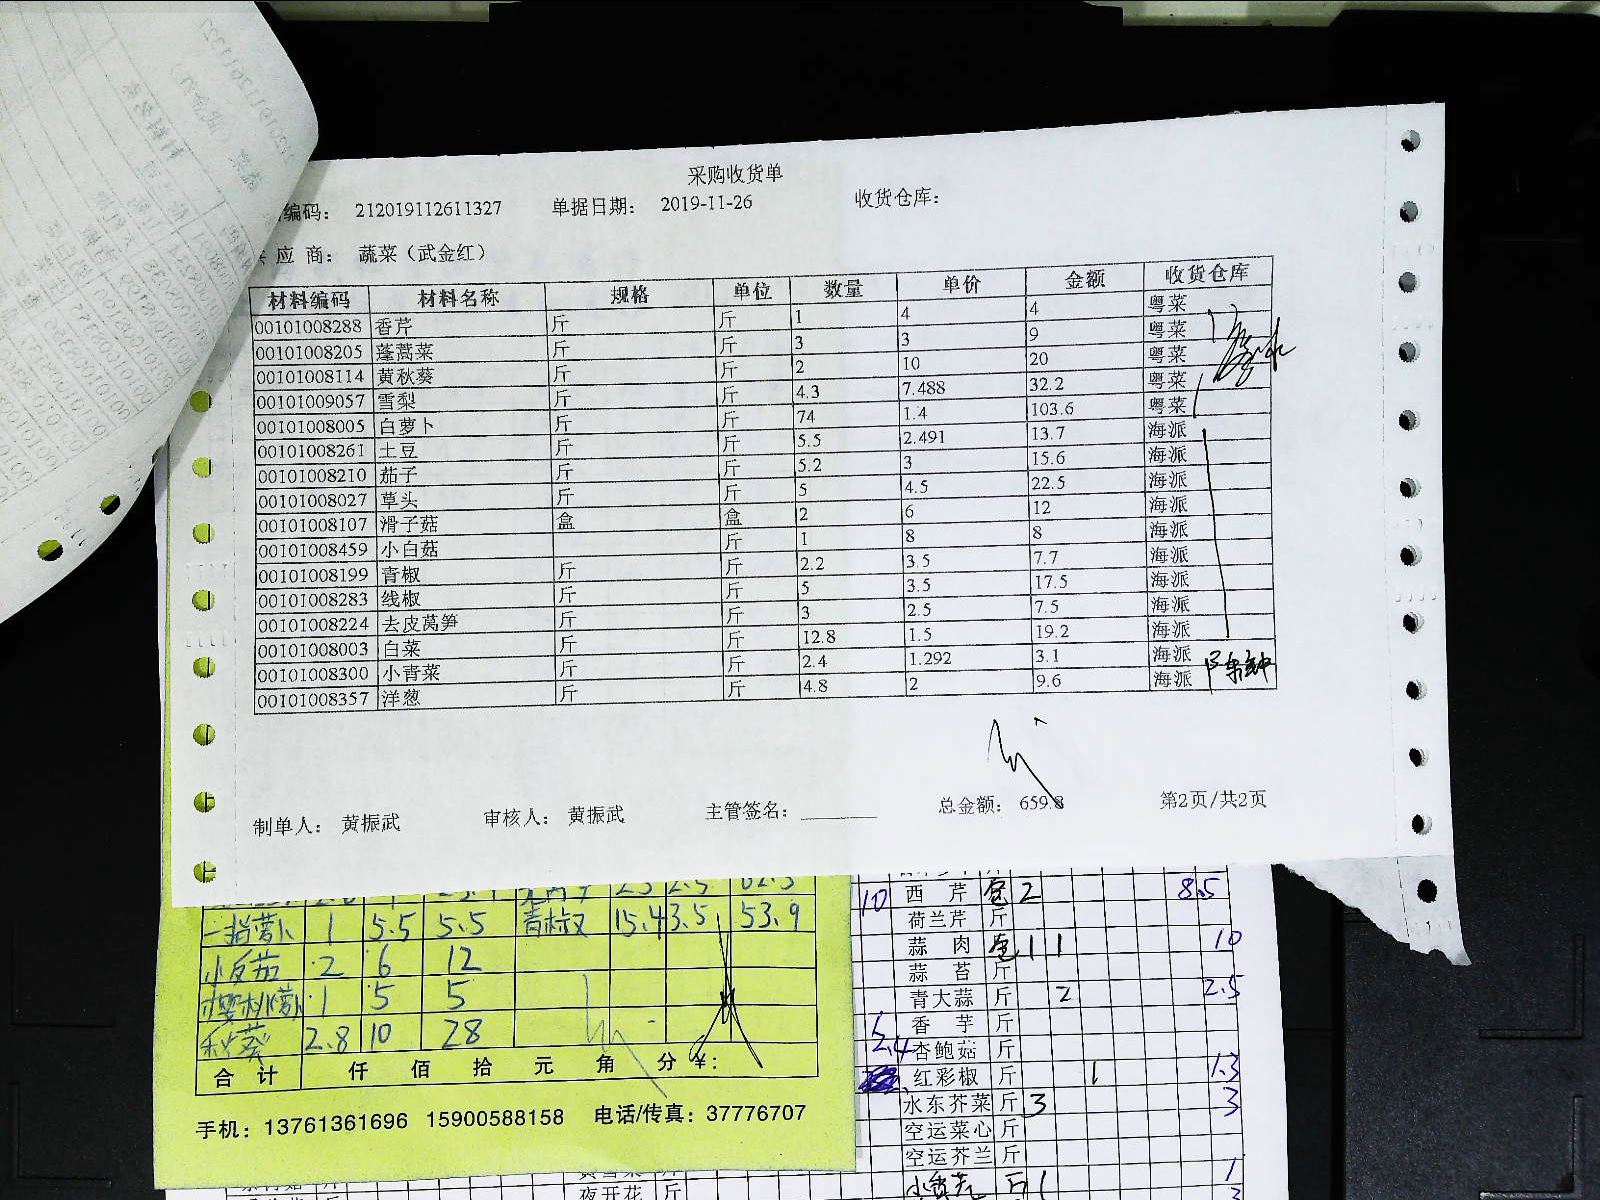 采购收货单
编码: 212019112611327 单据日期: 2019-11-26 收货仓库:
应 商: 蔬菜（武金红）
材料编码 材料名称 规格 单位 数量 单价 金额 收货仓库
00101008288 香芹 斤 斤 1 4 4 粤菜
00101008205 蓬蒿菜 斤 斤 3 3 9 粤菜
00101008114 黄秋葵 斤 斤 2 10 20 粤菜
00101009057 雪梨 斤 斤 4.3 7.488 32.2 粤菜
00101008005 白萝卜 斤 斤 74 1.4 103.6 粤菜
00101008261 土豆 斤 斤 5.5 2.491 13.7 海派
00101008210 茄子 斤 斤 5.2 3 15.6 海派
00101008027 草头 斤 斤 5 4.5 22.5 海派
00101008107 滑子菇 盒 盒 2 6 12 海派
00101008459 小白菇 斤 1 8 8 海派
00101008199 青椒 斤 斤 2.2 3.5 7.7 海派
00101008283 线椒 斤 斤 5 3.5 17.5 海派
00101008224 去皮莴笋 斤 斤 3 2.5 7.5 海派
00101008003 白菜 斤 斤 12.8 1.5 19.2 海派
00101008300 小青菜 斤 斤 2.4 1.292 3.1 海派
00101008357 洋葱 斤 斤 4.8 2 9.6 海派
制单人: 黄振武 审核人: 黄振武 主管签名: 总金额: 659.8 第2页/共2页
一指萝卜 1 5.5 5.5 青椒 15.4 3.5 53.9
2 6 12
樱桃萝卜 1 5 5
秋葵 2.8 10 28
合 计 仟 佰 拾 元 角 分 ¥:
手机: 13761361696 15900588158 电话/传真: 37776707
10 西 芹 2 8.5
荷兰芹 斤
蒜 肉 1 1 10
蒜 苔 斤
青大蒜 斤 2 2.5
香 芋 斤
2.4 杏鲍菇 斤
红彩椒 斤 1 1.3
水东芥菜 斤 3 3
空运菜心 斤
空运芥兰 斤
1
夜开花 斤